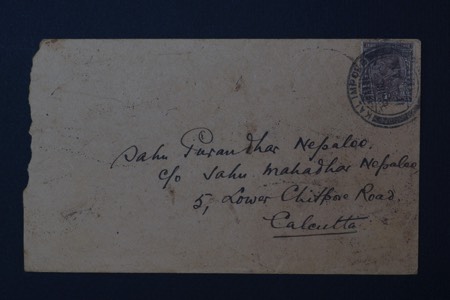 KALIMPONG
Sahu Purandhar Nepalee.
c/o Sahu Mahadhar Nepalee
5, Lower Chitpore Road.
Calcutta